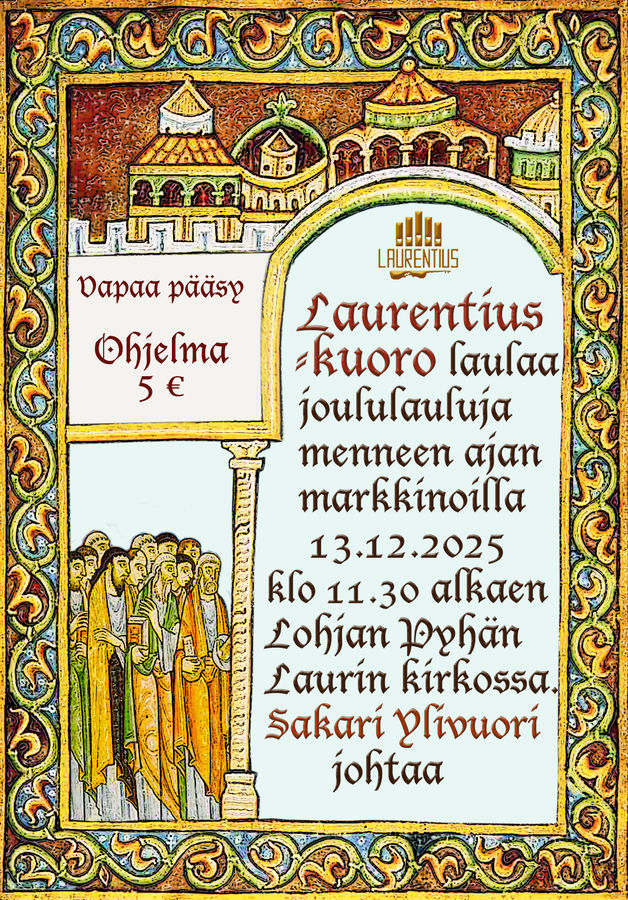 Vapaa pääsy
Ohjelma
5 €
LAURENTIUS
Laurentius
-kuoro laulaa
joululauluja
menneen ajan
markkinoilla
13.12.2025
klo 11.30 alkaen
Lohjan Pyhän
Laurin kirkossa.
Sakari Ylivuori
johtaa